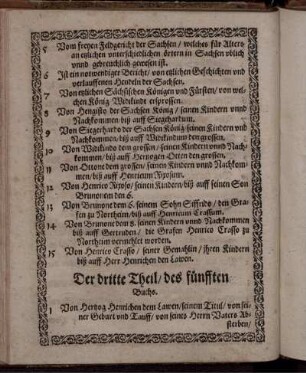 5 Vom freyen Feldgericht der Sachsen / welches für Alters
an etlichen unterschiedlichen örtern in Sachsen üblich
vnnd gebreuchlich gewesen ist.
6 Ist ein notwendiger Bericht / von etlichen Geschichten vnd
verlauffenen Hendeln der Sachsen.
7 Von etlichen Sächsischen Königen vnd Fürsten / von wel-
chen König Widekindt ersprossen.
8 Von Hengisto der Sachsen König / seinen Kindern vnnd
Nachkommen / biß auff Siegehardum.
9 Von Siegerhardo der Sachsen König seinen Kindern vnd
Nachkommen / biß auff Wedekindum den grossen.
10 Von Wedekindo dem grossen / seinen Kindern vnnd Nach-
kommen / biß auff Hertzogen Otten den grossen.
11 Von Ottone dem grossen / seinen Kindern vnnd Nachkom-
men / biß auff Henricum Ripsum.
12 Von Henrico Ripso / seinen Kindern / biß auff seinen Son
Brunonem den 6.
13 Von Brunone dem 6. seinem Sohn Siffrido / den Gra-
fen zu Northeim / biß auff Henricum Crassum.
14 Von Brunone dem 8. seinen Kindern vnnd Nachkommen
biß auff Gertruden / die Grafen Henrico Crasso zu
Northeim vermehlet worden.
15 Von Henrico Crasso / seiner Gemahlin / ihren Kindern
biß auff Herr Henrichen den Lawen.
Der dritte Theil / des fünfften
Buchs.
1 Von Hertzog Henrichen dem Lawen / seinem Titul / von sei-
ner Geburt vnd Tauff / von seines Herrn Vaters Ab-
sterben /